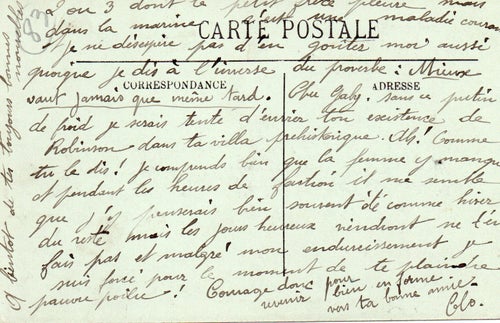 83
2 ou 3 dont le petit frère pleure mais
dans la marine c'est une maladie courante
CARTE POSTALE
je ne désespère pas d'en goûter moi aussi
quoique je dis à l'inverse du proverbe : Mieux
CORRESPONDANCE
ADRESSE
vaut jamais que même tard. Gaby. sans ce putain
de froid je serais tenté d'envier ton existence de
Robinson dans ta villa préhistorique. Ah! Comme
tu le dis! je comprends bien que la femme y manque
et pendant les heures de faction il me semble
que j'y penserais bien souvent été comme hiver
du reste mais les jours heureux viendront ne t'en
fais pas et malgré mon endurcissement je
suis forcé pour le moment de te plaindre
pauvre poilu! Courage donc pour
revenir bien en forme
vers ta bonne amie.
Clo.
A bientôt de tes toujours bonnes
nouvelles